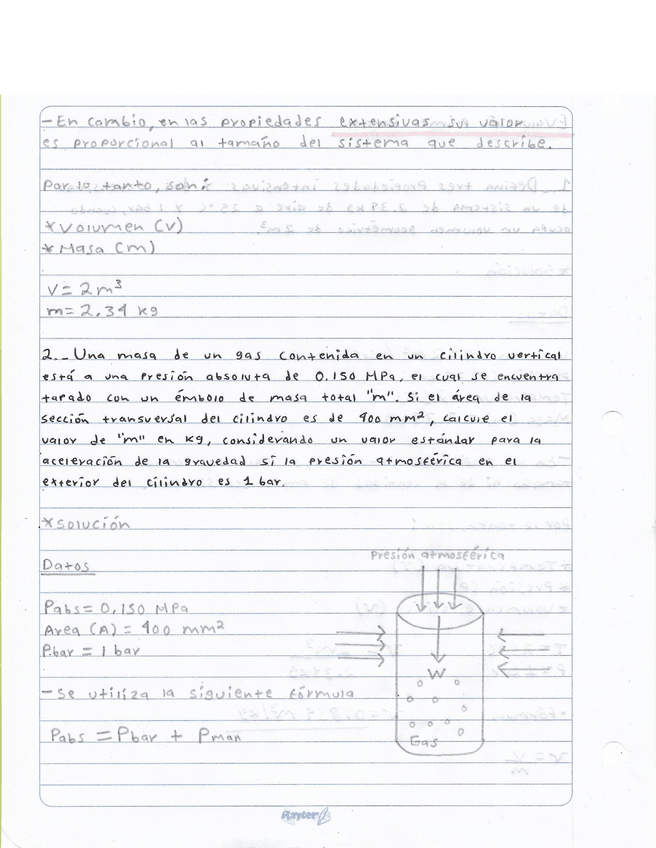 - En cambio, en las propiedades extensivas su valor
es proporcional al tamaño del sistema que describe.
Por lo tanto, son:
*Volumen (V)
*Masa (m)
V = 2 m³
m = 2,34 kg
2.- Una masa de un gas contenida en un cilindro vertical
está a una presión absoluta de 0.150 MPa, el cual se encuentra
tapado con un émbolo de masa total "m". Si el área de la
sección transversal del cilindro es de 400 mm², calcule el
valor de "m" en kg, considerando un valor estándar para la
aceleración de la gravedad si la presión atmosférica en el
exterior del cilindro es 1 bar.
*Solución
Datos
Presión atmosférica
Pabs = 0,150 MPa
Area (A) = 400 mm²
Pbar = 1 bar
W
- Se utiliza la siguiente fórmula
Pabs = Pbar + Pman
Gas
Playter